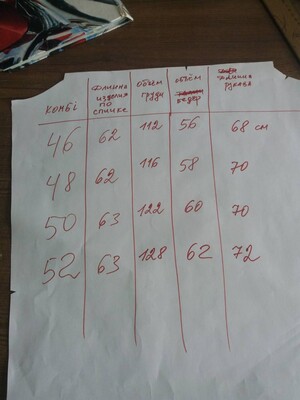 комбі
длинна
изделия
по
спинке
объём
груди
объём
бедер
длинна
рукава
46 62 112 56 68 см
48 62 116 58 70
50 63 122 60 70
52 63 128 62 72